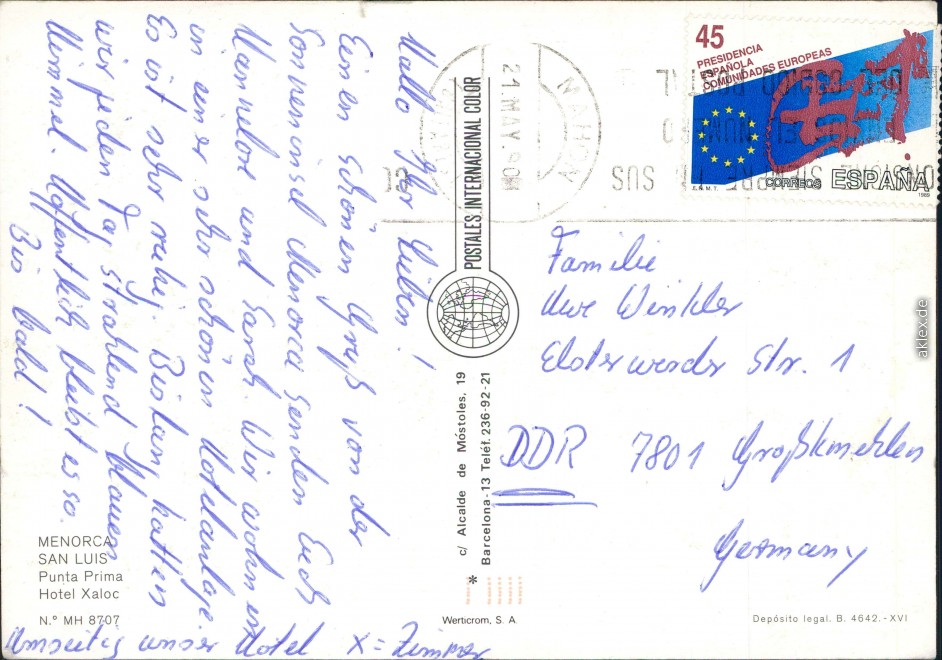 Hallo Ihr Lieben!
Einen schönen Gruß von der
Sonneninsel Menorca senden Euch
Hannelore und Gerah. Wir wohnen
in einer sehr schönen Hotelanlage.
Es ist sehr ruhig. Bislang hatten
wir jeden Tag strahlend blauen
Himmel. Hoffentlich bleibt es so.
Bis bald!
MENORCA
SAN LUIS
Punta Prima
Hotel Xaloc
N.° MH 8707
Umseitig unser Hotel X = Zimmer
POSTALES INTERNACIONAL COLOR
c/ Alcalde de Móstoles, 19
Barcelona-13 Teléf. 236-92-21
Werticrom, S. A.
45
PRESIDENCIA
ESPAÑOLA
COMUNIDADES EUROPEAS
F.N.M.T.
CORREOS ESPAÑA
1989
MAHON
21 MAY. 90
Familie
Uwe Winkler
Elsterwerder Str. 1
DDR 7801 Großkmehlen
Germany
Depósito legal. B. 4642.-XVI
aklex.de